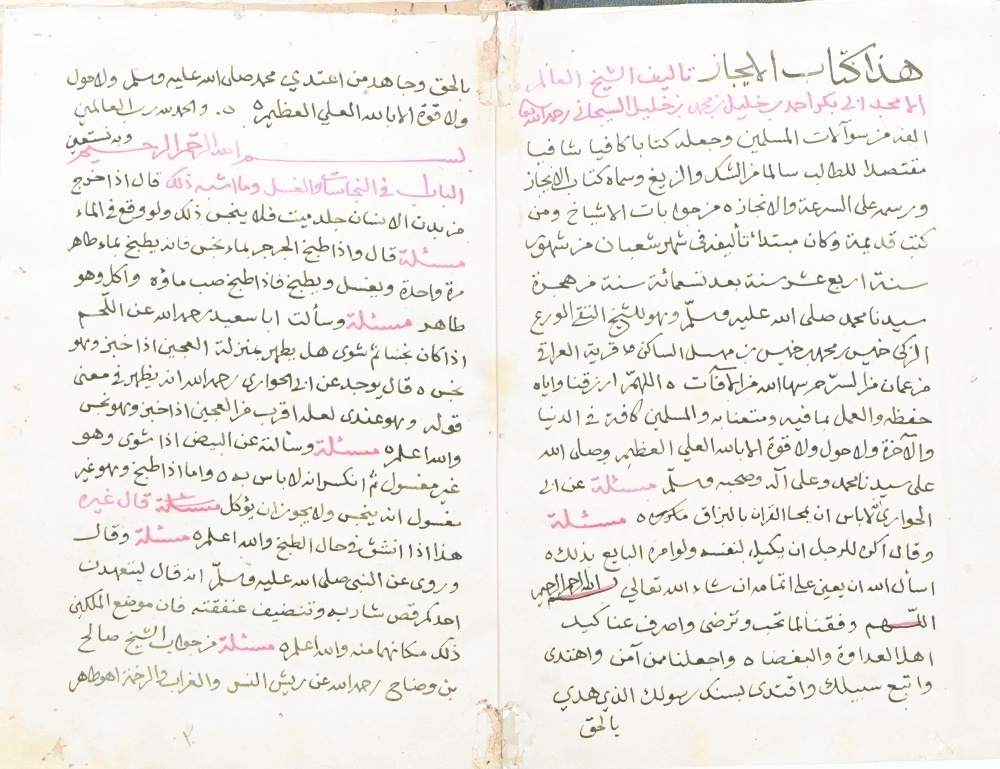 هذا كتاب الايجاز تاليف الشيخ العالم
الامجد ابي بكر احمد بن خليل بن محمد بن خليل السيجاني رحمه الله
الفه من سوآلات المسلمين وجعله كتابا كافيا شافيا
مقتصلا للطالب سالما من الشك والزيغ وسماه كتاب الايجاز
ورسمه على السرعة والانجازه من جوابات الاشياخ ومن
كتب قديمة وكان مبتدا تأليفه في شهر شعبان من شهور
سنة اربع عشر سنة بعد تسمائة سنة من هجرة
سيدنا محمد صلى الله عليه وسلم وهو للشيخ التقي الورع
الزكي خميس بن محمد بن خميس بن الساكن قرية العراقي
من عمان من السر حرسها الله من الآفات ه اللهم ارزقنا واياه
حفظه والعمل بما فيه ومتعنا به والمسلمين كافة في الدنيا
والآخرة ولا حول ولا قوة الا بالله العلي العظيم وصلى الله
على سيدنا محمد وعلى آله وصحبه وسلم مسئلة عن ابي
الحواري لاباس ان يمحا القران بالبزاق مكروه مسئلة
وقال اكره للرجل ان يكيل لنفسه ولو امره البايع بذلك ه
اسأل الله ان يعين على اتمامه ان شاء الله تعالى الله الرحمن الرحيم
اللهم وفقنا لما تحب وترضى واصرف عنا كيد
اهل العداوة والبغضا ه واجعلنا من آمن واهتدى
واتبع سبيلك واقتدى بسنة رسولك الذي هدي
بالحق
بالحق وجاهد من اعتدي محمد صلى الله عليه وسلم ولا حول
ولا قوة الا بالله العلي العظيم ه ه والحمد لله رب العالمين
بسم الله الرحمن الرحيم وبه نستعين
الباب في النجاسات والغسل وما اشبه ذلك قال اذا خرج
من بدن الانسان جلد ميت فلا ينجس ذلك ولو وقع في الماء
مسئلة قال واذا طبخ الجرجر بماء نجس فانه يطبخ بماء طاهر
مرة واحدة ويغسل ويطبخ فاذا طبخ صب ماؤه وأكل وهو
طاهر مسئلة وسألت ابا سعيد رحمه الله عن اللحم
اذا كان نجسا ثم شوى هل يطهر بمنزلة العجين اذا خبز وهو
نجس ه قال يوجد عن ابي الحواري رحمه الله انه يطهر في معنى
قوله وهو عندى لعله اقرب من العجين اذا خبز وهو نجس
والله اعلم ه مسئلة وسألته عن البيض اذا شوى وهو
غير مغسول ثم انكسر انه لا باس به ه واما اذا طبخ وهو غير
مغسول انه ينجس ولا يجوز ان يؤكل مسئلة قال غيره
هذا اذا انشق في حال الطبخ والله اعلم ه مسئلة وقال
وروى عن النبي صلى الله عليه وسلم انه قال ليتعهدن
احدكم قص شاربه وتنضيف عنفقته فان موضع الملكين
ذلك مكانهما منه والله اعلم ه مسئلة من جواب الشيخ صالح
بن وضاح رحمه الله عن ريش النسر والغراب والرخمة اهو طاهر